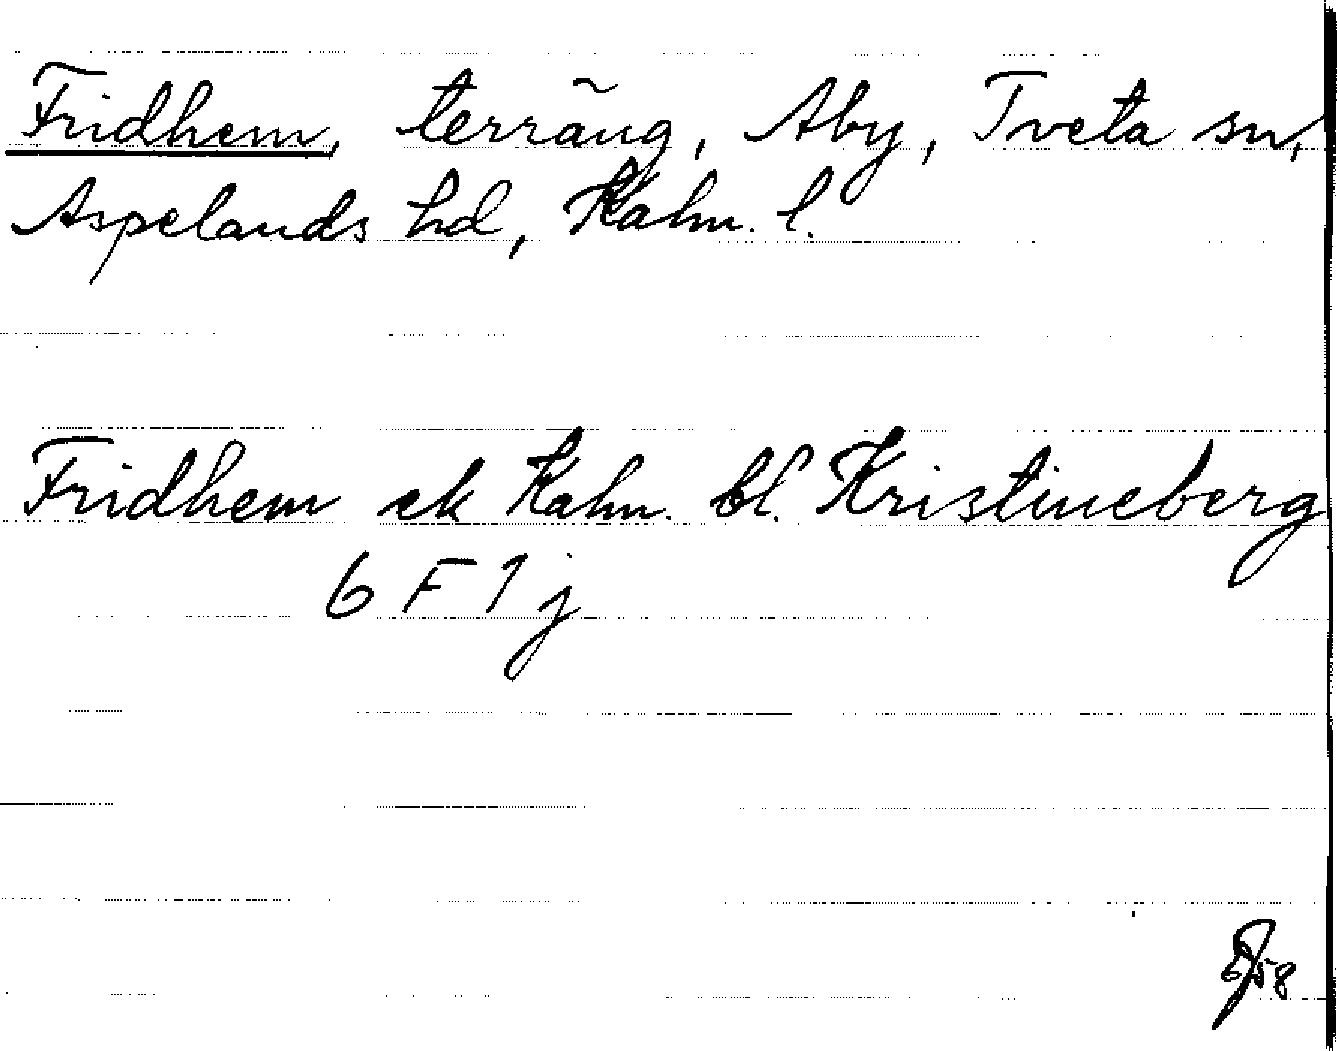 Fridhem, terräng, Åby, Tveta sn,
Aspelands hd, Kalm. l.
Fridhem ek Kalm. bl. Kristineberg
6 F 1 j